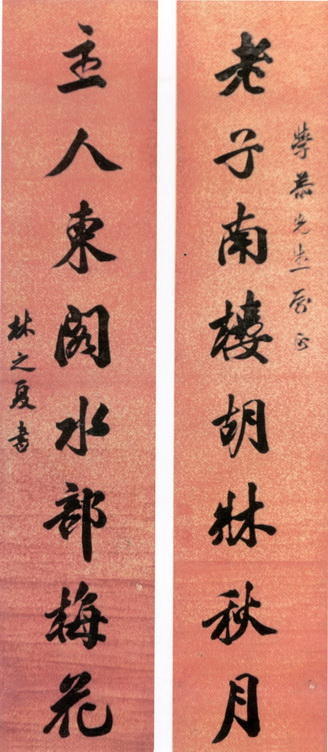 先生
老子南樓胡牀秋月
主人東閣水部梅花
林之夏書